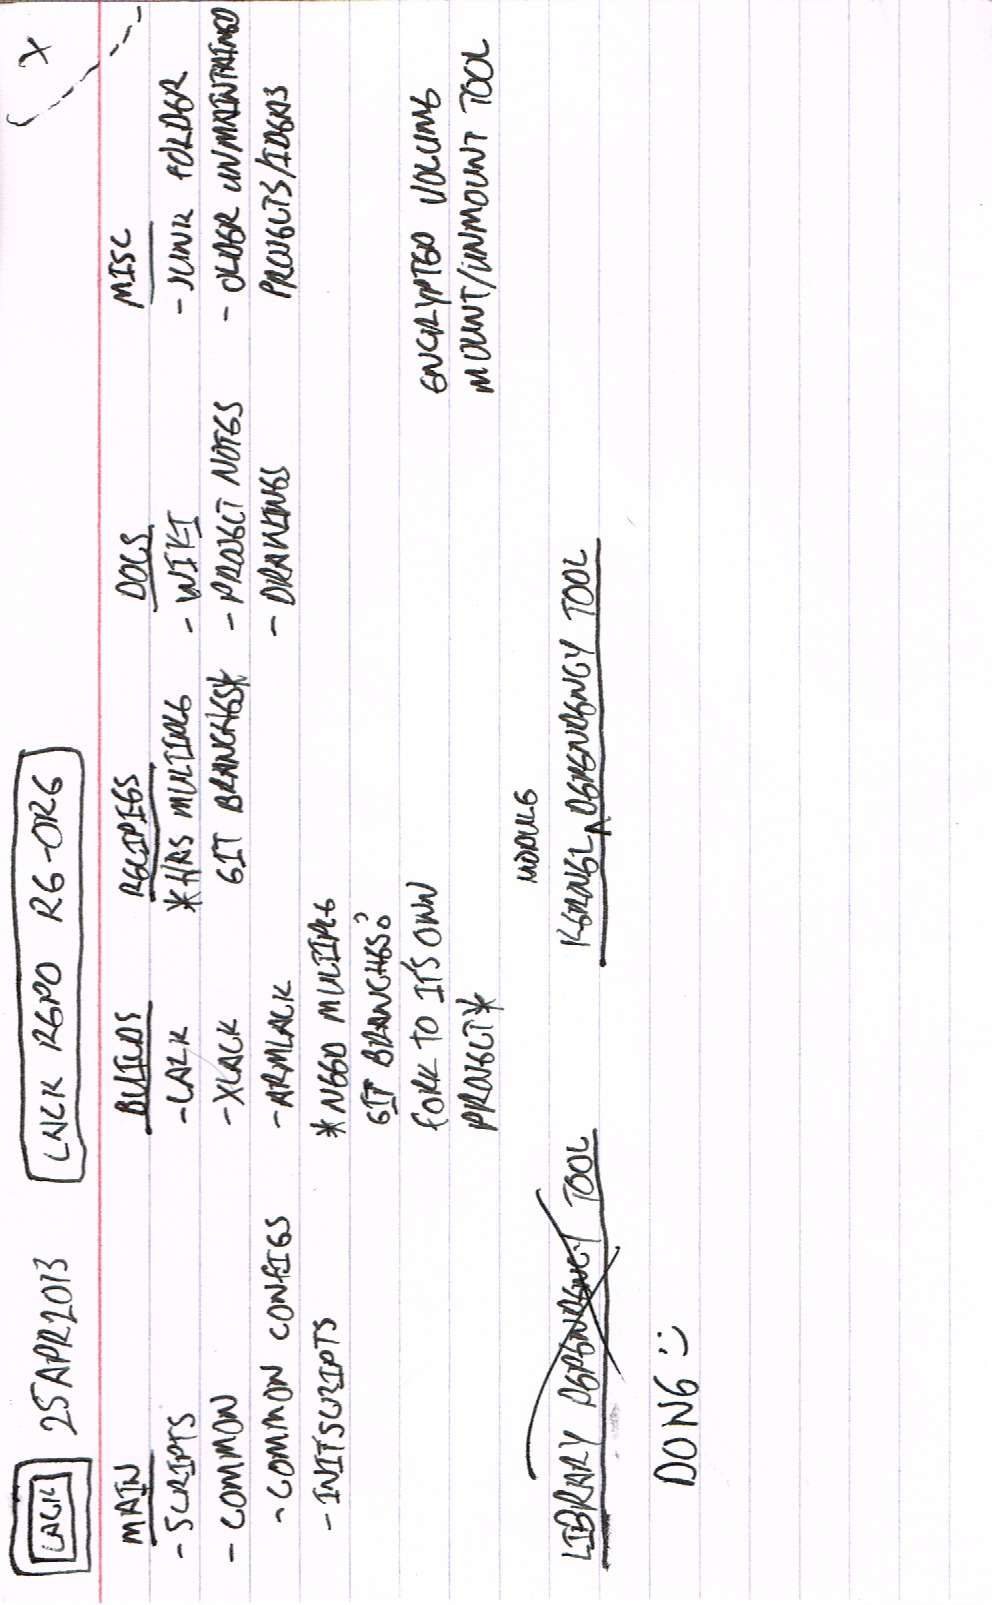 LACK 25APR2013 LACK REPO RE-ORG X
MAIN
- SCRIPTS
- COMMON
- COMMON CONFIGS
- INITSCRIPTS
BUILDS
- LACK
- XLACK
- ARMLACK
* NEED MULTIPLE
GIT BRANCHES?
FORK TO IT'S OWN
PROJECT *
RECIPIES
* HAS MULTIPLE
GIT BRANCHES *
DOCS
- WIKI
- PROJECT NOTES
- DRAWINGS
MISC
- JUNK FOLDER
- OLDER UNMAINTAINED
PROJECTS/IDEAS
ENCRYPTED VOLUME
MOUNT/UNMOUNT TOOL
LIBRARY DEPENDENCY TOOL
DONE :)
MODULE
KERNEL ^ DEPENDENCY TOOL